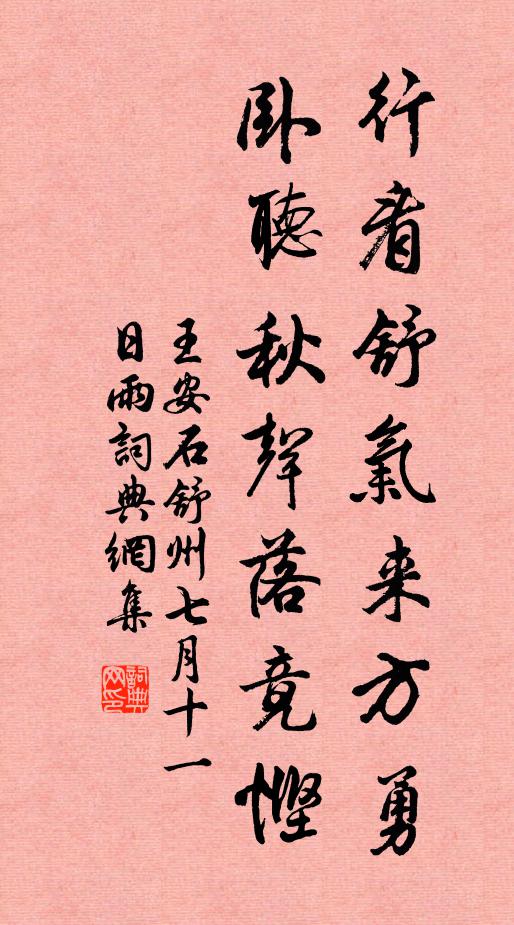 行看舒氣来方勇
卧聽秋聲落竟慳
王安石舒州七月十一
日雨詞典網集
詞典网印